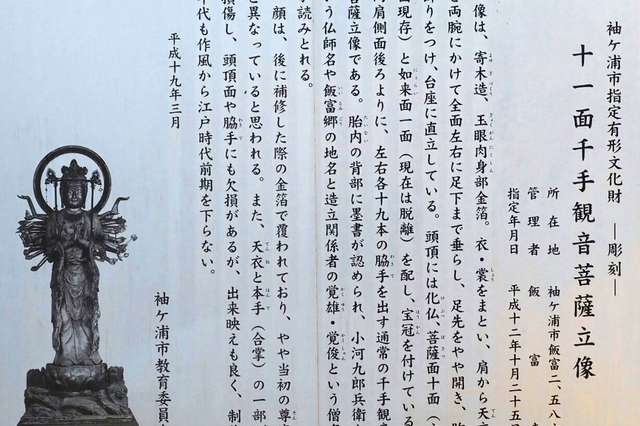 袖ケ浦市指定有形文化財 ―彫刻―
十一面千手観音菩薩立像
所在地 袖ケ浦市飯富二、五八
管理者 飯富
指定年月日 平成十二年十月二十五日
像は、寄木造、玉眼肉身部金箔。衣・裳をまとい、肩から天
を両腕にかけて全面左右に足下まで垂らし、足先をやや開き、
りをつけ、台座に直立している。頭頂には化仏、菩薩面十面（
現存）と如来面一面（現在は脱離）を配し、宝冠を付けている
両肩側面後ろよりに、左右各十九本の脇手を出す通常の千手観
菩薩立像である。胎内の背部に墨書が認められ、小河九郎兵衛
いう仏師名や飯富郷の地名と造立関係者の覚雄・覚俊という僧名
読みとれる。
顔は、後に補修した際の金箔で覆われており、やや当初の尊
と異なっていると思われる。また、天衣と本手（合掌）の一部
損傷し、頭頂面や脇手にも欠損があるが、出来映えも良く、制
年代も作風から江戸時代前期を下らない。
平成十九年三月
袖ケ浦市教育委員